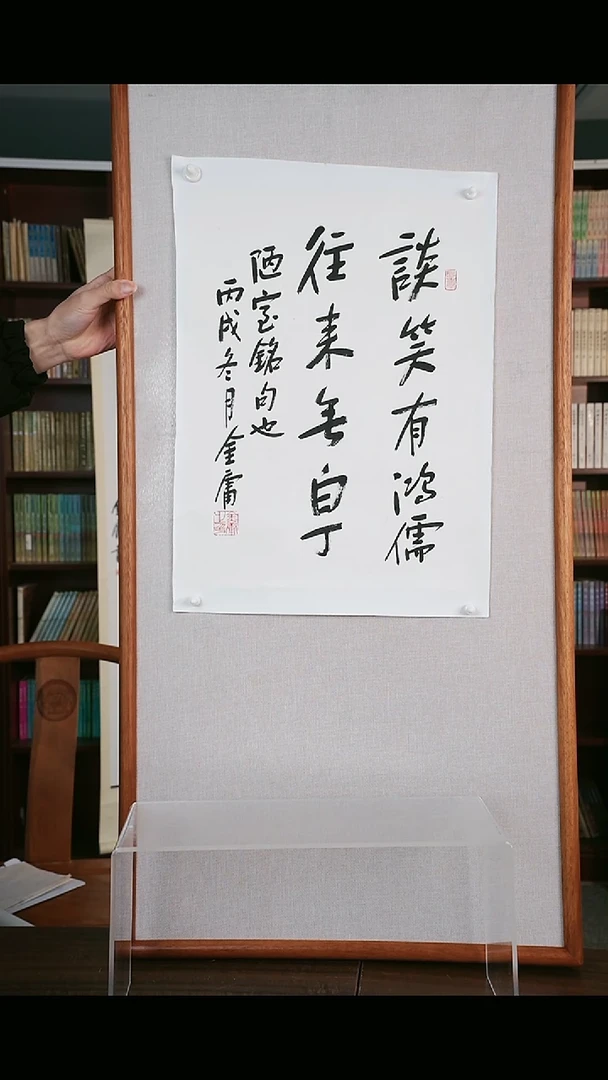 談笑有鴻儒
往来無白丁
陋室銘句也
丙戌冬月金庸